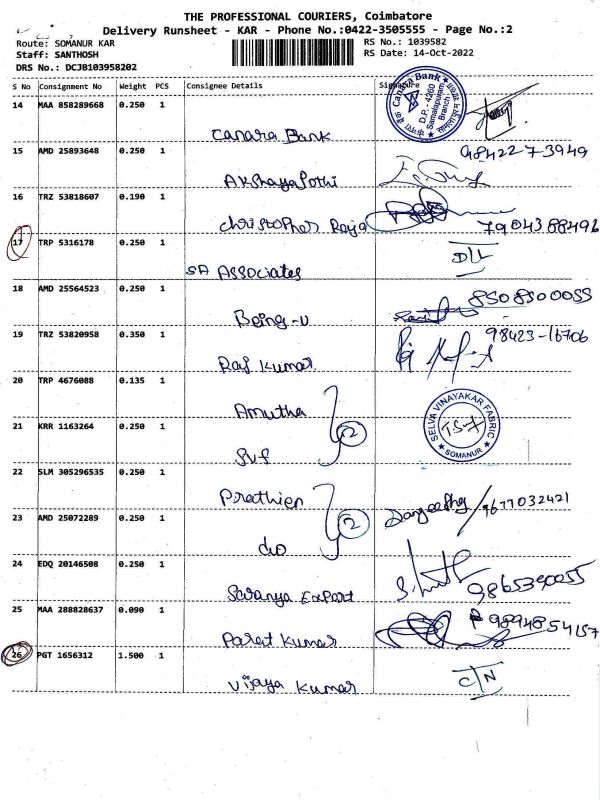 THE PROFESSIONAL COURIERS, Coimbatore
Delivery Runsheet - KAR - Phone No.:0422-3505555 - Page No.:2
Route: SOMANUR KAR
RS No.: 1039582
Staff: SANTHOSH
RS Date: 14-Oct-2022
DRS No.: DCJB103958202
S No Consignment No Weight PCS Consignee Details Signature
14 MAA 858289668 0.250 1
Canara Bank
Canara Bank D.P.-4260 Samalapuram Branch
15 AMD 25893648 0.250 1
98422 73949
AKshayaJothi
16 TRZ 53818607 0.190 1
Christopher Raja
7904388492
17 TRP 5316178 0.250 1
D/L
SA Associates
18 AMD 25564523 0.250 1
8508500055
Being-U
19 TRZ 53820958 0.350 1
98423-16706
Raj Kumar
20 TRP 4676088 0.135 1
Amutha
2
SELVA VINAYAKAR FABRIC SOMANUR
21 KRR 1163264 0.250 1
SVF
22 SLM 305296535 0.250 1
9677032421
23 AMD 25072289 0.250 1
2
do
24 EDQ 20146508 0.250 1
9865390055
Saranya Export
25 MAA 288828637 0.090 1
9894854157
Parat Kumar
26 PGT 1656312 1.500 1
C/N
Vijaya Kumar